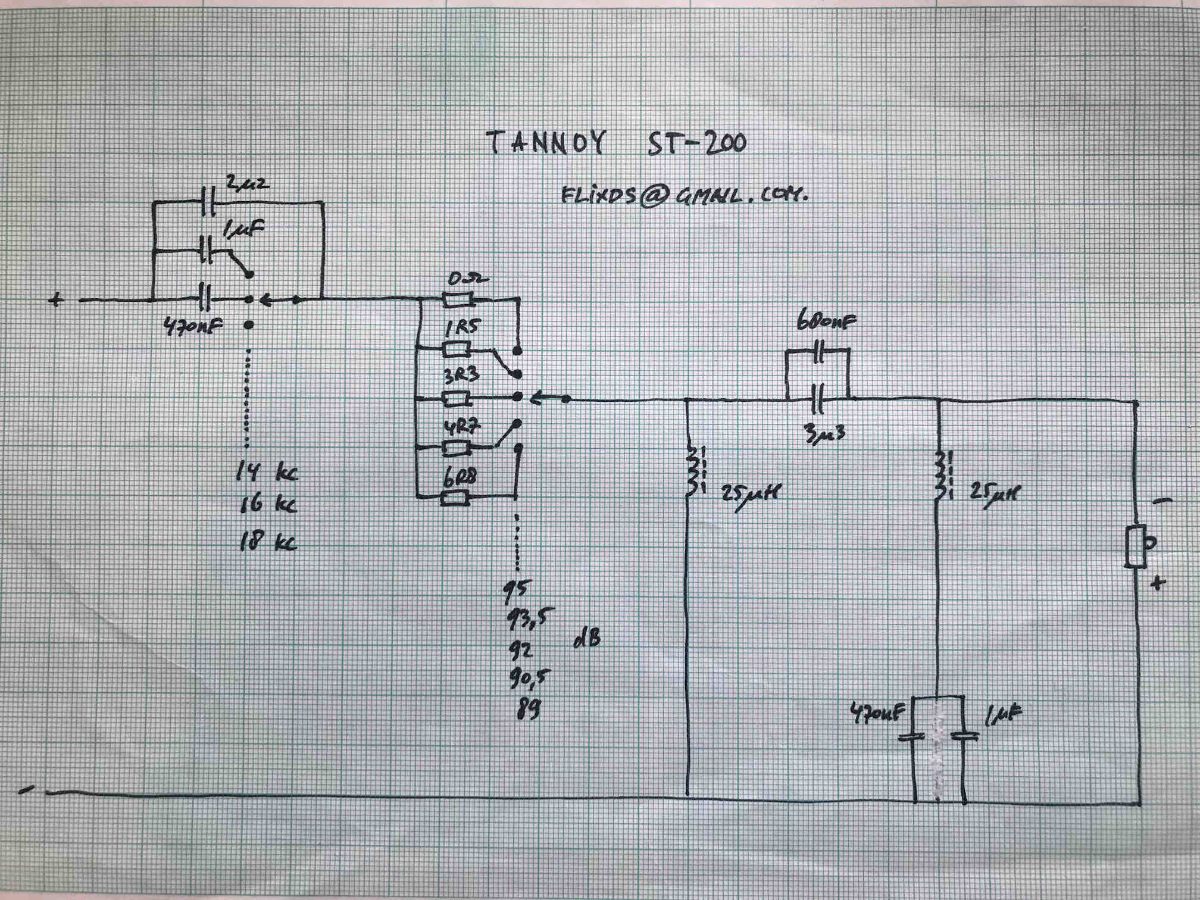 TANNOY ST-200
FLiXDS@GMAIL.COM.
2µ2
1µF
+
470nF
0Ω
1R5
3R3
4R7
6R8
680nF
3µ3
25µH
25µH
-
+
14 kc
16 kc
18 kc
95
93,5
92
90,5
89
dB
470nF
1µF
-